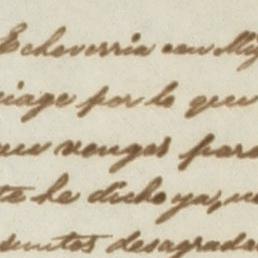 Echeverria con Mi
viage por lo que
que vengas para
te he dicho ya, 
asuntos desagrada